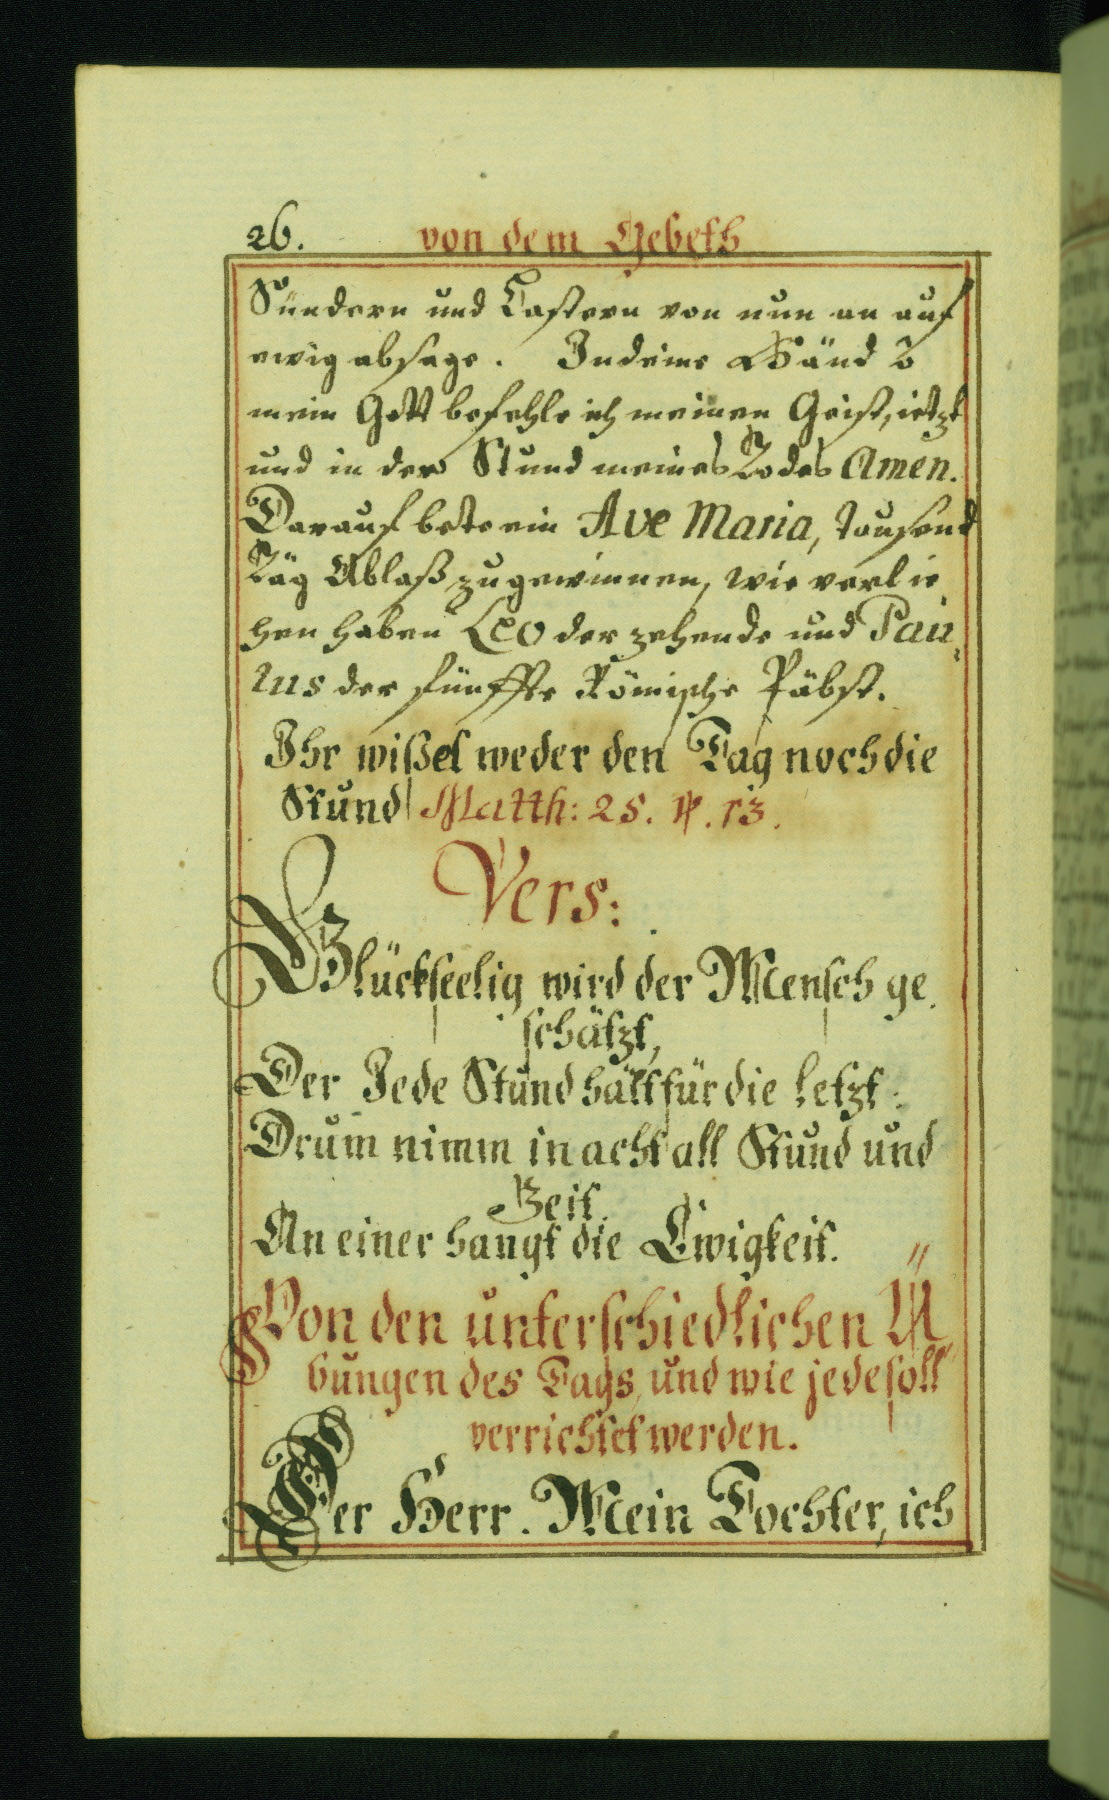 26. von dem Gebeth
Sündern und Lastern von nun an auf
ewig absage. In deine Händ ô
mein Gott befehle ich meinen Geist, ietzt
und in der Stund meines Todes Amen.
Darauf bete ein Ave Maria, tausend
Täg Ablaß zu gewinnen, wie verlie,
hen haben Leo der zehende und Pau,
lus der fünffte Römische Päbst.
Ihr wißet weder den Tag noch die
Stund Matth: 25. ℣. 13.
Vers:
Glückseelig wird der Mensch ge,
schätzt,
Der Jede Stund hält für die letzt:
Drum nimm in acht all Stund und
Zeit.
An einer hangt die Ewigkeit.
Von den unterschiedlichen Ü,
bungen des Tags, und wie jede soll
verrichtet werden.
Der Herr. Mein Tochter, ich